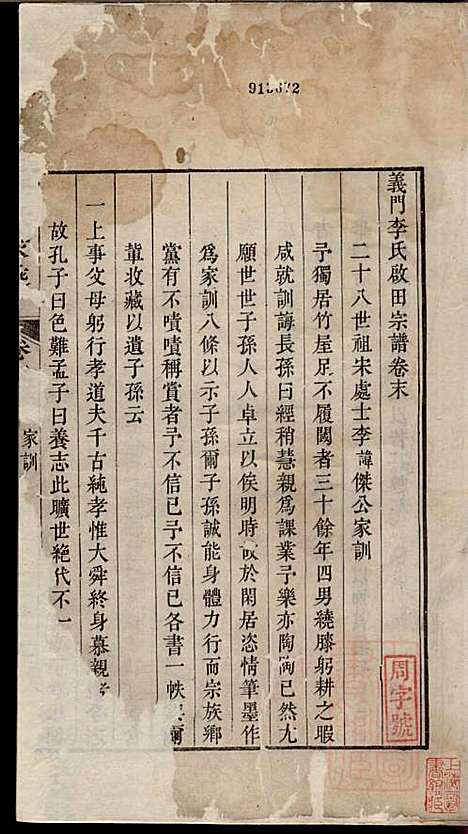 913672
義門李氏啟田宗譜卷末
二十八世祖宋處士李諱傑公家訓
予獨居竹屋足不履閾者三十餘年四男繞膝躬耕之暇
咸就訓誨長孫曰經稍慧親為課業予樂亦陶陶已然尤
願世世子孫人人卓立以俟明時故於閑居恣情筆墨作
為家訓八條以示子孫爾子孫誠能身體力行而宗族鄉
黨有不嘖嘖稱賞者予不信已予不信已各書一帙 爾
輩收藏以遺子孫云
一上事父母躬行孝道夫千古純孝惟大舜終身慕親
故孔子曰色難孟子曰養志此曠世絶代不一
家訓
周字號